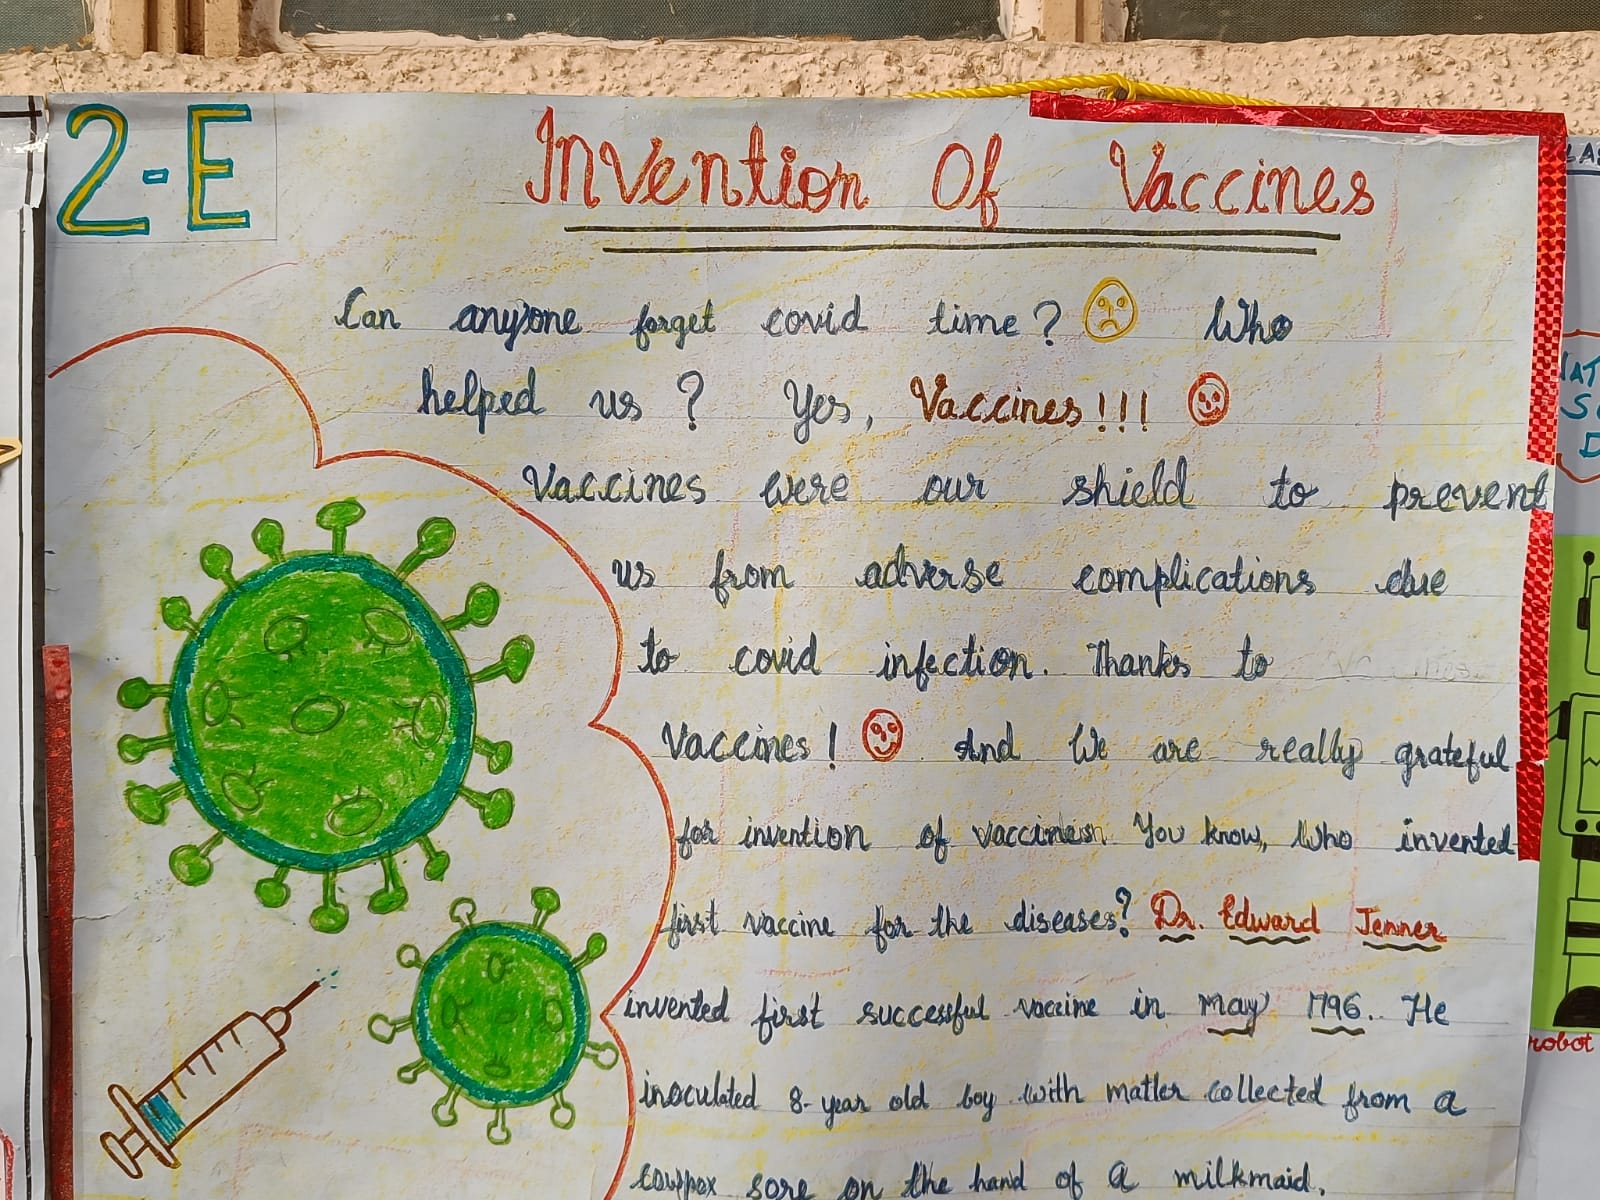 2-E
Invention Of Vaccines
Can anyone forget covid time? Who
helped us? Yes, Vaccines!!!
Vaccines were our shield to prevent
us from adverse complications due
to covid infection. Thanks to
Vaccines! And We are really grateful
for invention of vaccines. You know, Who invented
first vaccine for the diseases? Dr. Edward Jenner
invented first successful vaccine in May 1796. He
inoculated 8-year old boy with matter collected from a
cowpox sore on the hand of a milkmaid.
robot